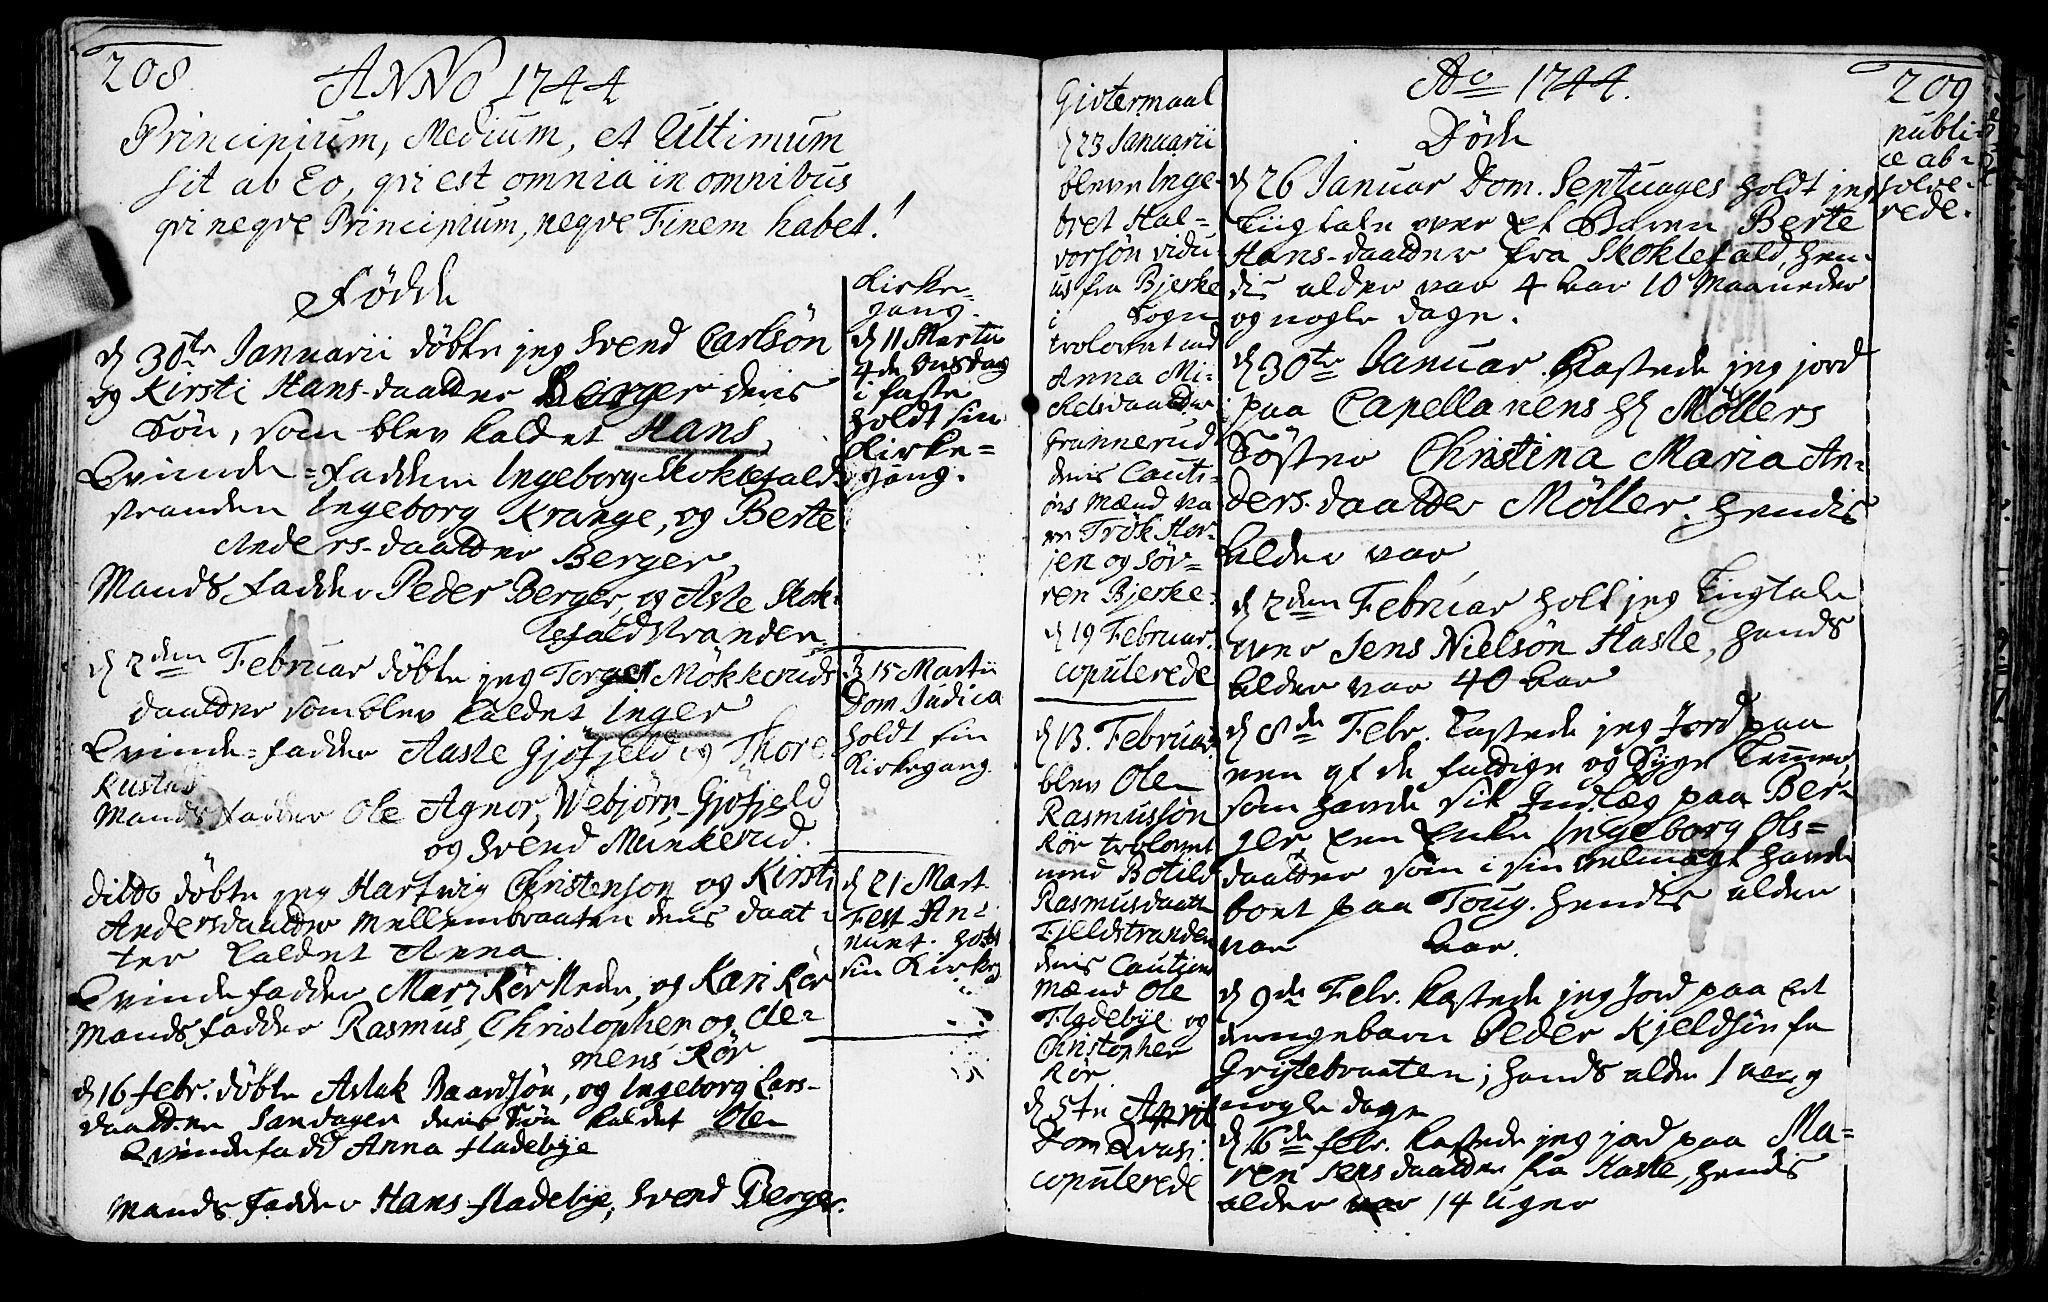 208.
ANNO 1744
Principium, Medium, et Ultimum
sit ab Eo, qvi est omnia in omnibus
qvi neqve Principium, neqve Finem habet!
Fødde
d 30te Januarii døbte jeg Svend Carlsøn
og Kirsti Hans-daatter Berger deris
Søn, som blev kaldet Hans,
Qvinde-faddere Ingeborg Skoklefald-
stranden Ingeborg Krange, og Berte
Anders-daatter Berger,
Mands fadder Peder Berger, og Asle Skok-
lefaldstranden
d 2den Februar døbte jeg Torger Mökkeruds
daatter som blev kaldet Inger
Qvinde-fadder Aaste Gjøfjeld og Thore
Rustad
Mands fadder Ole Agnor, Webjørn Gjøfjeld
og Svend Munkerud.
ditto døbte jeg Hartwig Christensøn og Kirsti
Andersdaatter Mellembraaten deris daat-
ter kaldet Anna.
Qvindefadder Mari Rör Nedre, og Kari Rör
Mands fadder Rasmus, Christopher og Cle-
mens Rör
d 16 febr. døbte Aslak Baardsøn, og Ingeborg Lars-
daatter Sandagen deris Søn kaldet Ole
Qvindefadd Anna fladebye
Mands fadder Hans fladebye, Svend Berger.
Kirke-
gang.
d 11 Martii
4de Onsdag
i faste
holdt sin
Kirke-
gang.
d 15 Martii
Dom Judica
holdt sin
Kirkegang
d 21 Mart.
Fest An-
nunt. holdt
sin Kirkeg
Giftermaal
d 23 Januarii
bleve Inge-
bret Hal-
vorsøn vidu-
us fra Bjerke
i Sogn
trolovet med
Anna Mi-
chelsdaatter
Grannerud
deris Cauti-
ons Mænd va-
re Trök Hor-
jen og Sör-
ren Bjerke.
d 19 Februar.
copulerede
d 13. Februar
blev Ole
Rasmussøn
Rör trolovet
med Botild
Rasmusdaatt
Fjeldstranden
deris Cautions
Mænd Ole
Fladebye og
Christopher
Rör.
d 5te April
Dom Qvasi
copulerede
Ao 1744.
Døde
d 26 Januar Dom. Septuages holdt jeg
Liigtale over et Barn Berte
Hans-daatter fra Skoklefald, hen-
dis alder var 4 aar 10 Maaneder
og nogle dage.
d 30te Januar. Kastede jeg jord
paa Capellanens Hr Møllers
Søster Christina Maria An-
ders-daatter Møller. hendis
alder var
d 2den Februar holt jeg Liigtale
over Jens Nielsøn Hasle, hands
alder var 40 aar
d 8de Febr. Kastede jeg Jord paa
een af de fattige og Syge Lemmer,
som havde sit Indlæg paa Ber-
ger een Enke Ingeborg Ols-
daatter som i sin velmagt havde
boet paa Toug. hendis alder
var aar.
d 9de Febr. Kastede jeg Jord paa et
drengebarn Peder Kjeldsøn fra
Gristebraaten; hands alder 1 aar og
nogle dage
d 16de febr. Kastede jeg jord paa Ma-
ren Jens daatter fra Hasle, hendis
alder var 14 Uger
209
publi-
ce ab-
solve-
rede.